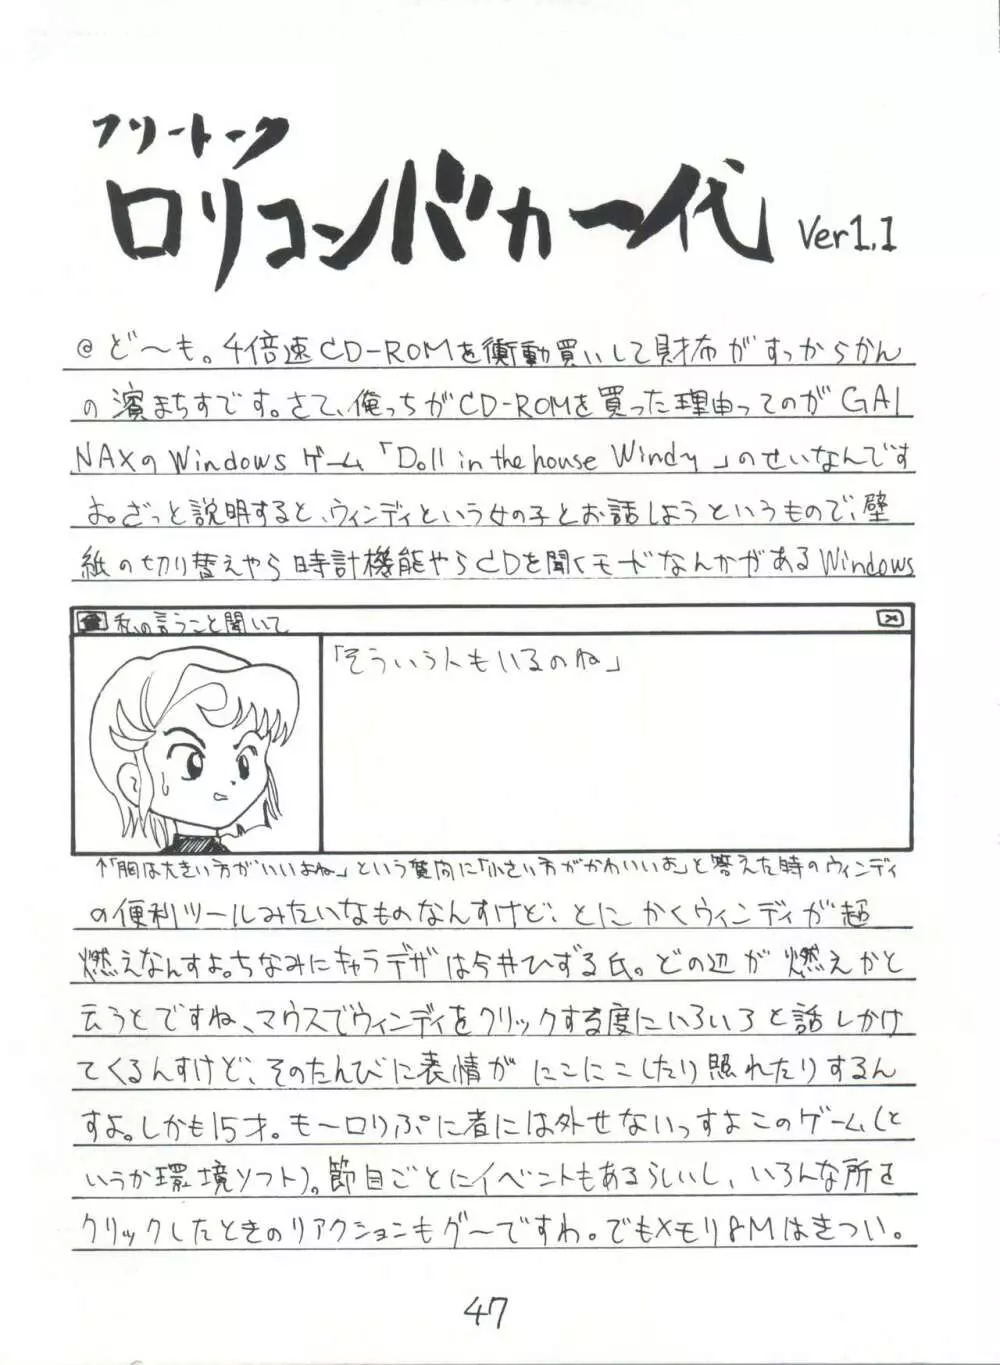 フリートーク
ロリコンバカ一代 Ver1.1
@ど〜も。4倍速CD-ROMを衝動買いして財布がすっからかん
の濱まちすです。さて、俺っちがCD-ROMを買った理由ってのがGAI
NAXのWindowsゲーム「Doll in the house Windy」のせいなんです
よ。ざっと説明すると、ウィンディという女の子とお話しようというもので、壁
紙の切り替えやら時計機能やらCDを聞くモードなんかがあるWindows
私の言うこと聞いて
「そういう人もいるのね」
↑「胸は大きい方がいいよね」という質問に「小さい方がかわいいよ」と答えた時のウィンディ
の便利ツールみたいなものなんすけど、とにかくウィンディが超
燃えなんすよ。ちなみにキャラデザは今井ひずる氏。どの辺が燃えかと
云うとですね、マウスでウィンディをクリックする度にいろいろと話しかけ
てくるんすけど、そのたんびに表情がにこにこしたり照れたりするん
すよ。しかも15才。も〜ロリぷに者には外せないっすよこのゲーム(と
いうか環境ソフト)。節目ごとにイベントもあるらしいし、いろんな所を
クリックしたときのリアクションもグ〜ですわ。でもメモリ8Mはきつい。
47